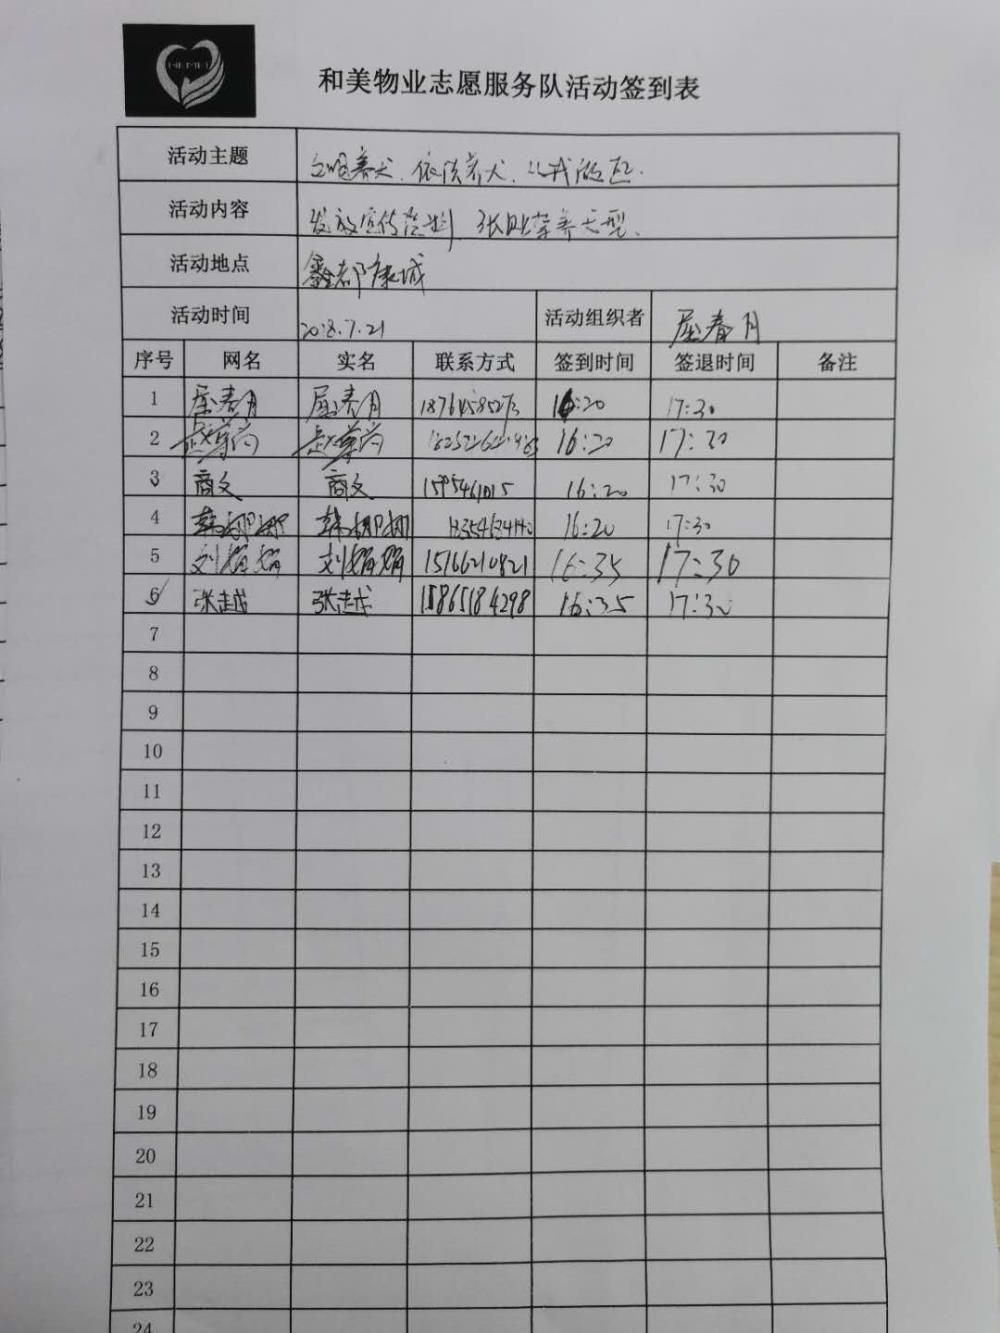 HEMEI
和美物业志愿服务队活动签到表
活动主题 文明养犬.依法养犬.从我做起.
活动内容 发放宣传资料
活动地点 鑫都康城
活动时间 2018.7.21 活动组织者 屈春月
序号 网名 实名 联系方式 签到时间 签退时间 备注
1 屈春月 屈春月 16:20 17:30
2 16:20 17:30
3 商文 商文 1595461015 16:20 17:30
4 韩娜娜 韩娜娜 16:20 17:30
5 刘娟娟 刘娟娟 15166210821 16:35 17:30
6 张越 张越 15865184298 16:35 17:30
7
8
9
10
11
12
13
14
15
16
17
18
19
20
21
22
23
24